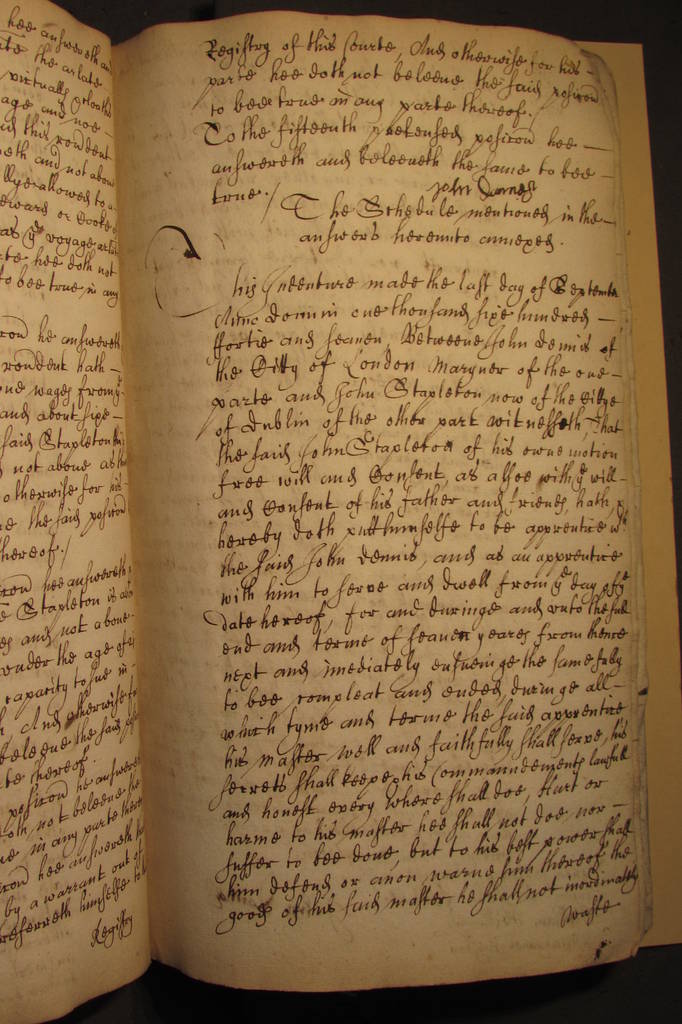 hee answereth an
the arlate
virtually
age and noe
this rondent
and not abou
allowed to a
steward or Cooke
as ye voyage arlate
hee doth not
to bee true in any
he answereth
rondent hath
wages from ye
and about sixe
said Stapleton
not above as
otherwise for his
the said posicon
thereof./
hee answereth
Stapleton is
and not above
under the age of
capacity to sue in
And otherwise
beleeve the said
thereof.
posicon he answere
doth not beleeve the
in any parte there
hee answereth
by a warrant out of
referreth himselfe to
Registry
Registry of this Courte, And otherwise for his
parte hee doth not beleeve the said posicon
to bee true in any parte thereof./
To the fifteenth pretensed posicon hee
answereth and beleeveth the same to bee
true./
John Dennes
The Schedule mentioned in the
answers hereunto annexed.
This Indenture made the last day of September
Anno Domini one thousand sixe hundred
ffortie and seaven, Betweene John Dennis of
the Citty of London Maryner of the one
parte and John Stapleton now of the Cittye
of Dublin of the other part witnesseth, That
the said John Stapleton of his owne motion
free will and Consent, as alsoe with ye will
and Consent of his father and friends, hath, &
hereby doth putt himselfe to be apprentice wth
the said John Dennis, and as an apprentice
with him to serve and dwell from ye day of ye
date hereof, for and duringe and unto the full
end and terme of seaven yeares from thence
next and imediately ensueinge the same fully
to bee compleat and ended, duringe all
which tyme and terme the said apprentice
his master well and faithfully shall serve, his
secretts shall keepe, his Commaundements lawfull
and honest every where shall doe, Hurt or
harme to his master hee shall not doe nor
suffer to bee done, but to his best power shall
him defend or anon warne him thereof the
goods of his said master he shall not inordinately
waste